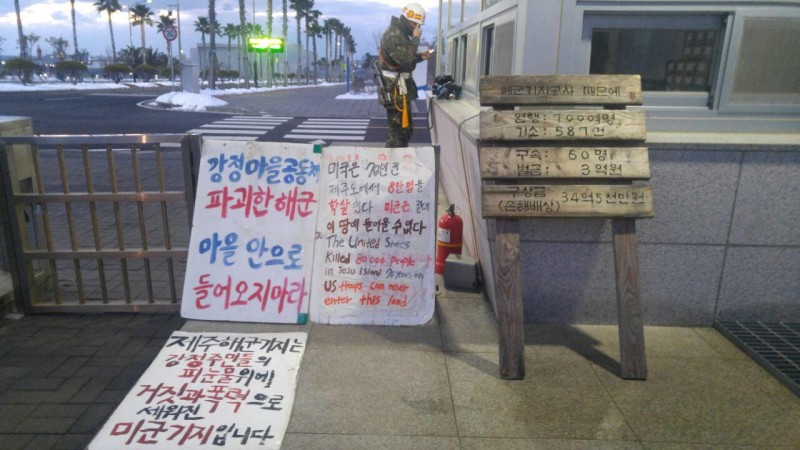 강정마을공동체
파괴한 해군
마을 안으로
들어오지마라
미국은 70년 전
제주도에서 8만명을
학살 했다 미군은 절대
이 땅에 들어올 수 없다
The United States
killed 80000 people
in Jeju Island 70 years ago
US troops can never
enter this land
제주해군기지는
강정주민들의
피눈물위에
거짓과 폭력으로
세워진
미군기지입니다
해군기지공사 때문에
연행: 700여명
기소: 587건
구속: 60명
벌금: 3억원
구상금 34억5천만원
(손해배상)